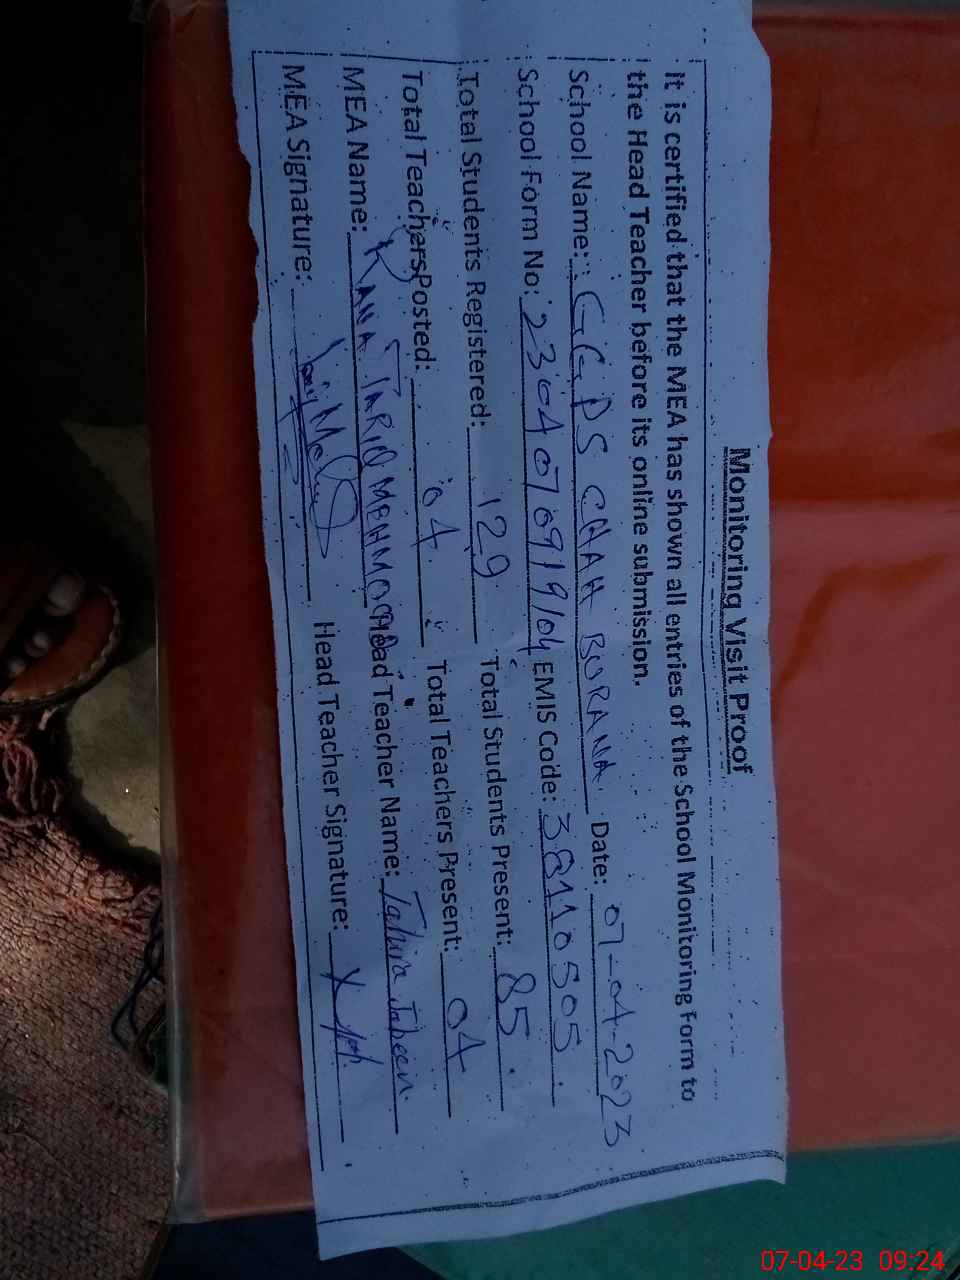 Monitoring Visit Proof
It is certified that the MEA has shown all entries of the School Monitoring Form to
the Head Teacher before its online submission.
School Name: GGPS CHAH BORANA Date: 07-04-2023
School Form No: 2304070919104 EMIS Code: 38110505
Total Students Registered: 129 Total Students Present: 85
Total Teachers Posted: 04 Total Teachers Present: 04
MEA Name: RANA TARIQ MEHMOOD Head Teacher Name: Tahira Jabeen
MEA Signature: Head Teacher Signature:
07-04-23 09:24